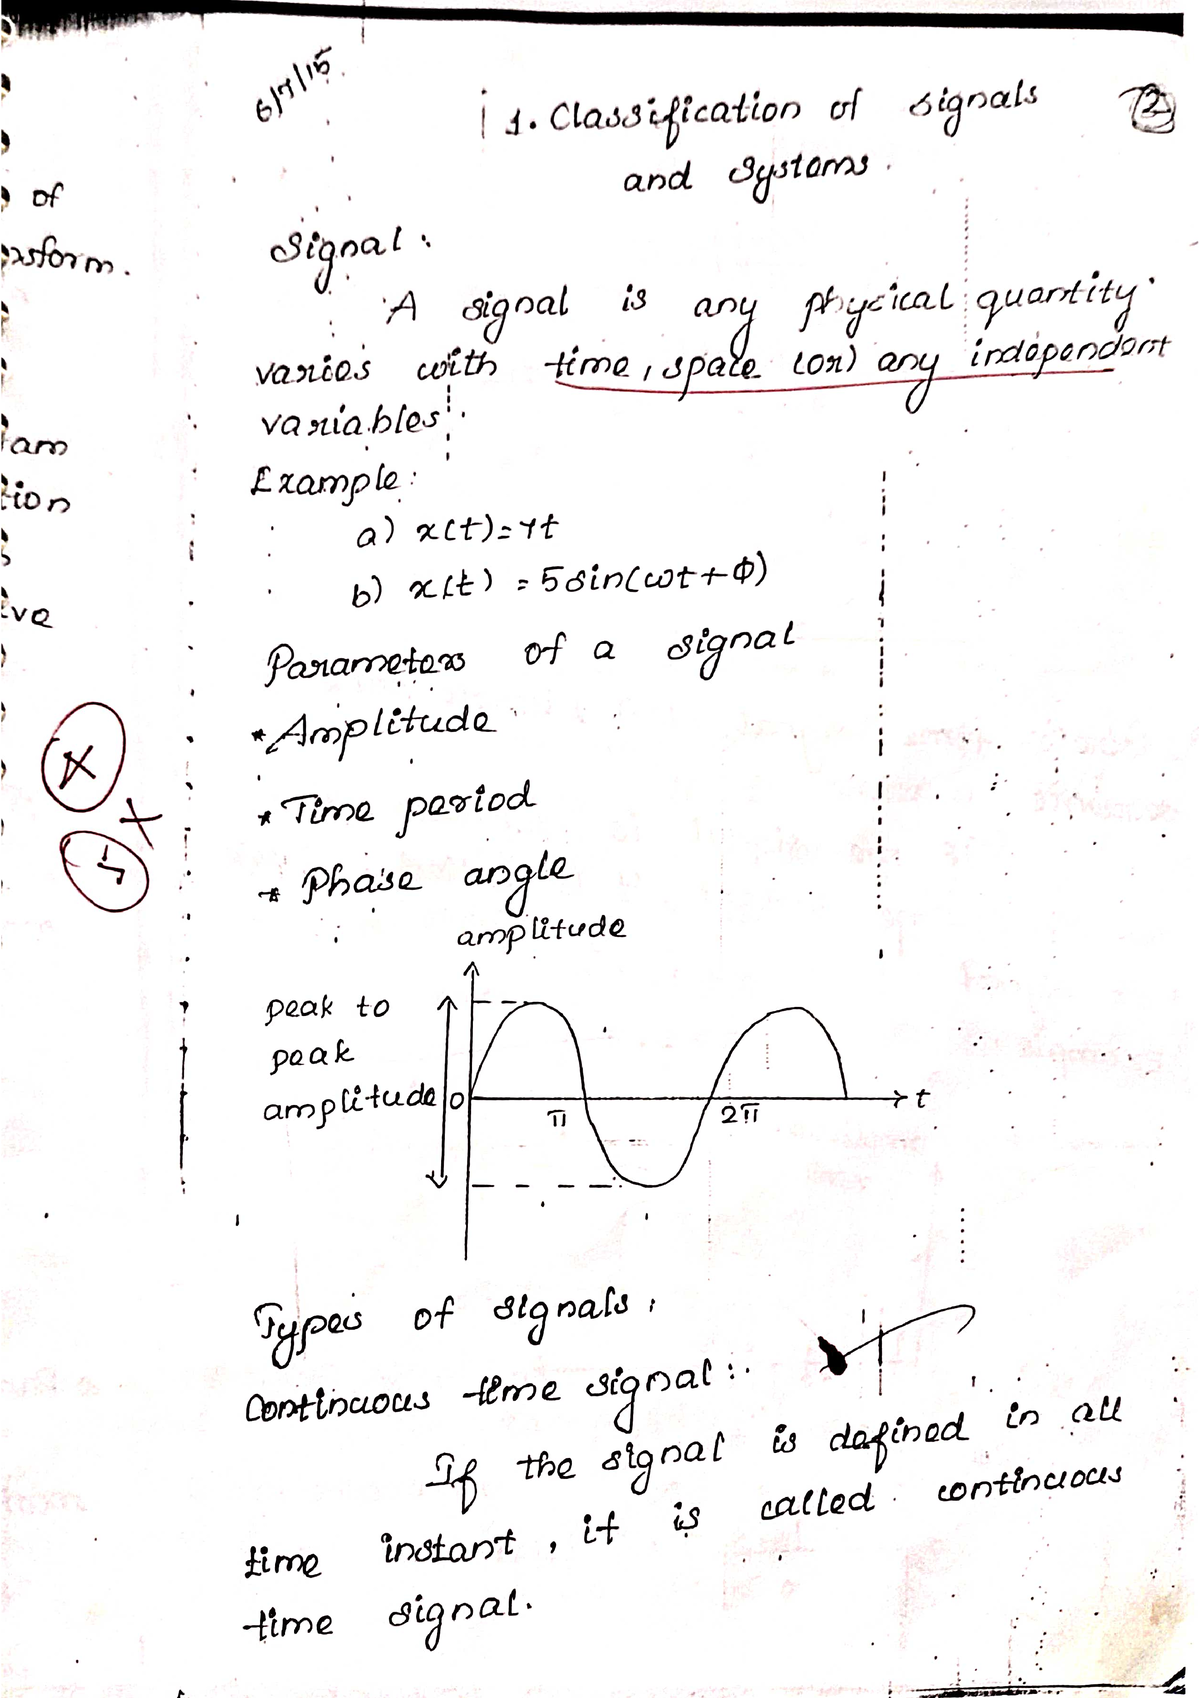 6/7/15
1. Classification of signals
and Systems.
(2)
of
nsform.
am
tion
ve
Signal:
A signal is any physical quantity
varies with time, space (or) any independent
variables.
Example:
a) x(t)=7t
b) x(t) = 5sin(ωt+Φ)
Parameters of a signal
* Amplitude
* Time period
* Phase angle
amplitude
peak to
peak
amplitude
0
π
2π
t
Types of signals.
Continuous time signal:
If the signal is defined in all
time instant, it is called continuous
time signal.